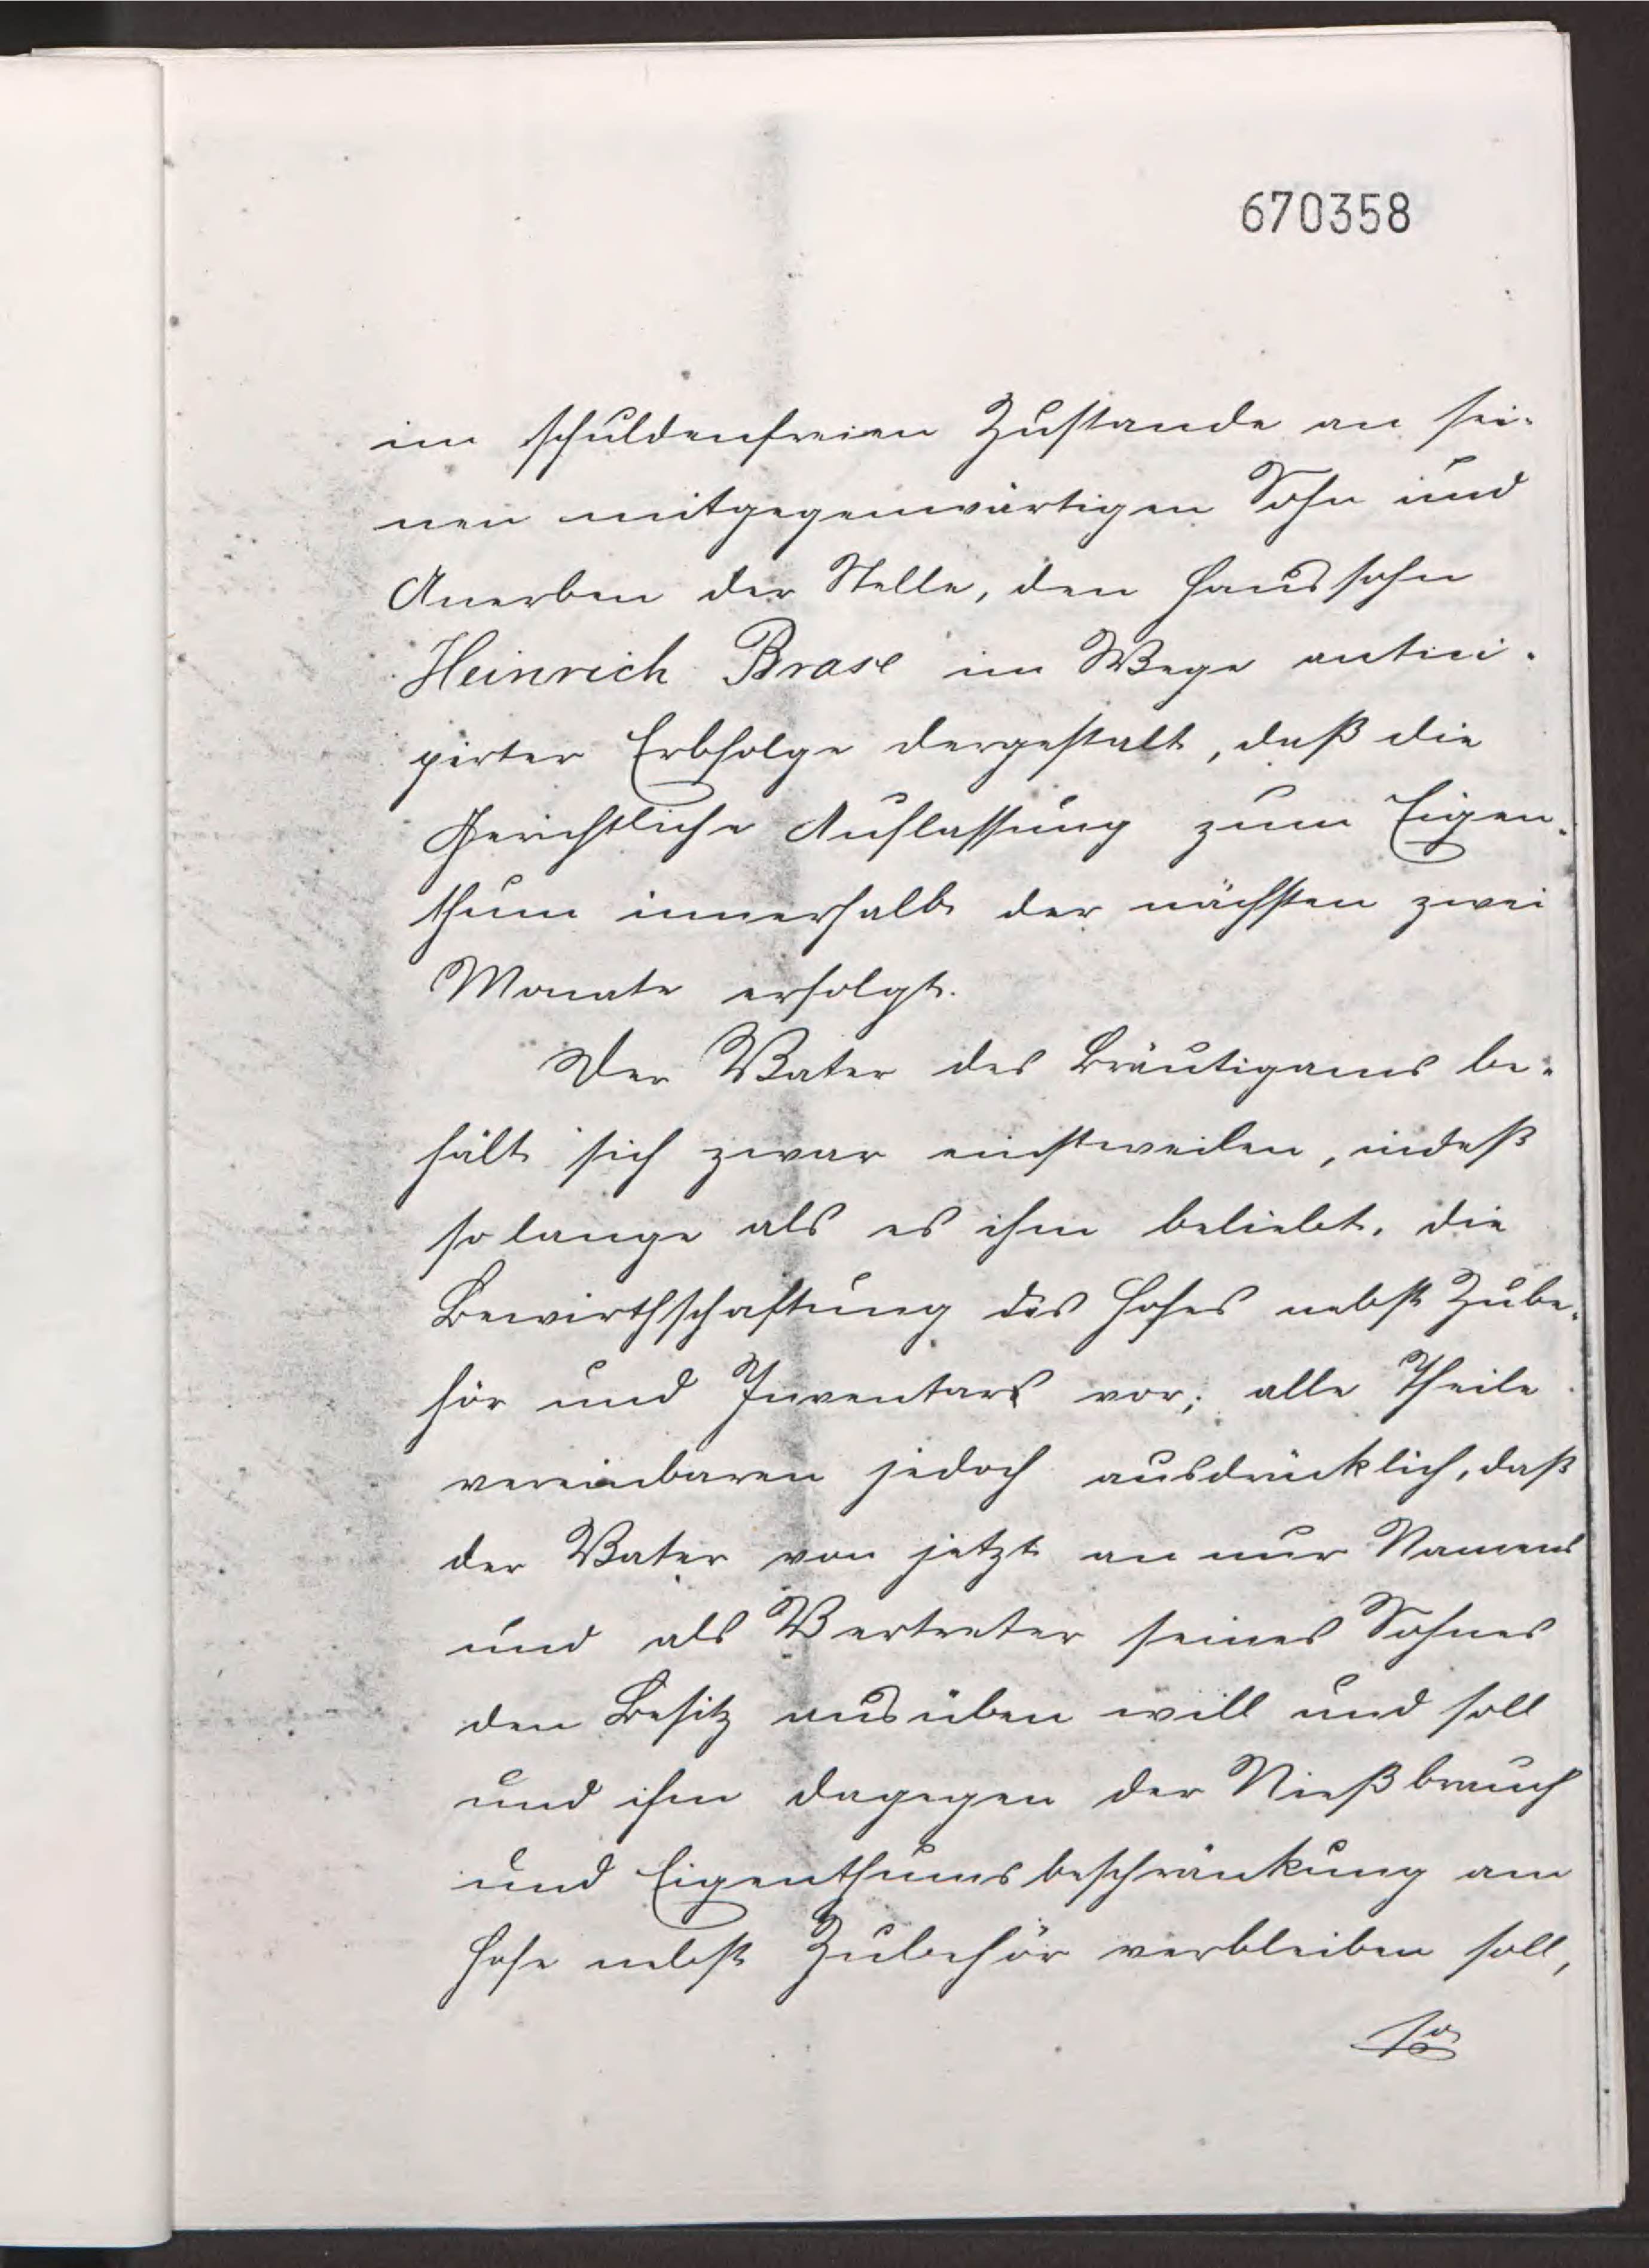 670358
im schuldenfreien Zustande an sei-
nen mitgegenwärtigen Sohn und
Anerben der Stelle, den Haussohn
Heinrich Brase im Wege antici-
pirter Erbfolge dergestalt, daß die
Gerichtliche Auflassung zum Eigen-
thum innerhalb der nächsten zwei
Monate erfolgt.
Der Vater des Bräutigams be-
hält sich zwar einstweilen, indeß
so lange als es ihm beliebt, die
Bewirthschaftung des Hofes nebst Zube-
hör und Inventars vor; alle Theile
vereinbaren jedoch ausdrücklich, daß
der Vater von jetzt an nur Namens
und als Vertreter seines Sohnes
den Besitz ausüben will und soll
und ihm dagegen der Nießbrauch
und Eigenthumsbeschränkung am
Hofe nebst Zubehör verbleiben soll,
so